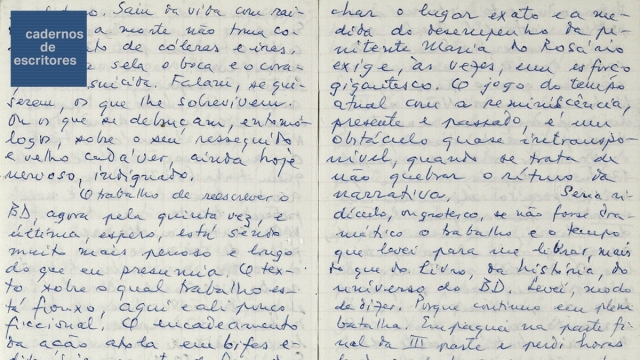 cadernos
de
escritores
Saiu da vida com rai-
a morte não toma co-
to de cóleras e ires.
sela o boca e o cora-
suicida. Falam, se qui-
serem, os que lhe sobrevivem.
Ou os que se debruçam, entomó-
logos, sobre o seu resseguido
e velho cadáver, ainda hoje
nervoso, indignado.
O trabalho de reescrever o
BD, agora pela quinta vez, e
última, espero, está sendo
muito mais penoso e longo
do que eu presumia. O tex-
to sobre o qual trabalho es-
tá frouxo, aqui e ali pouco
ficcional. O encadeamento
da ação atola em bifes e
char o lugar exato e a me-
dida do desempenho da pe-
nitente Maria do Rosário
exige, às vezes, um esforço
gigantesco. O jogo do tempo
atual com a reminiscência,
presente e passado, é um
obstáculo quase intranspo-
nível, quando se trata de
não quebrar o ritmo da
narrativa. Seria ri-
dículo, ou grotesco, se não fosse dra-
mático o trabalho e o tempo
que levei para me librar, mais
do que do livro, da história, do
universo do BD. Levei, modo
de dizer. Porque continuo em plena
batalha. Empaquei na parte fi-
nal da III parte e perdi horas